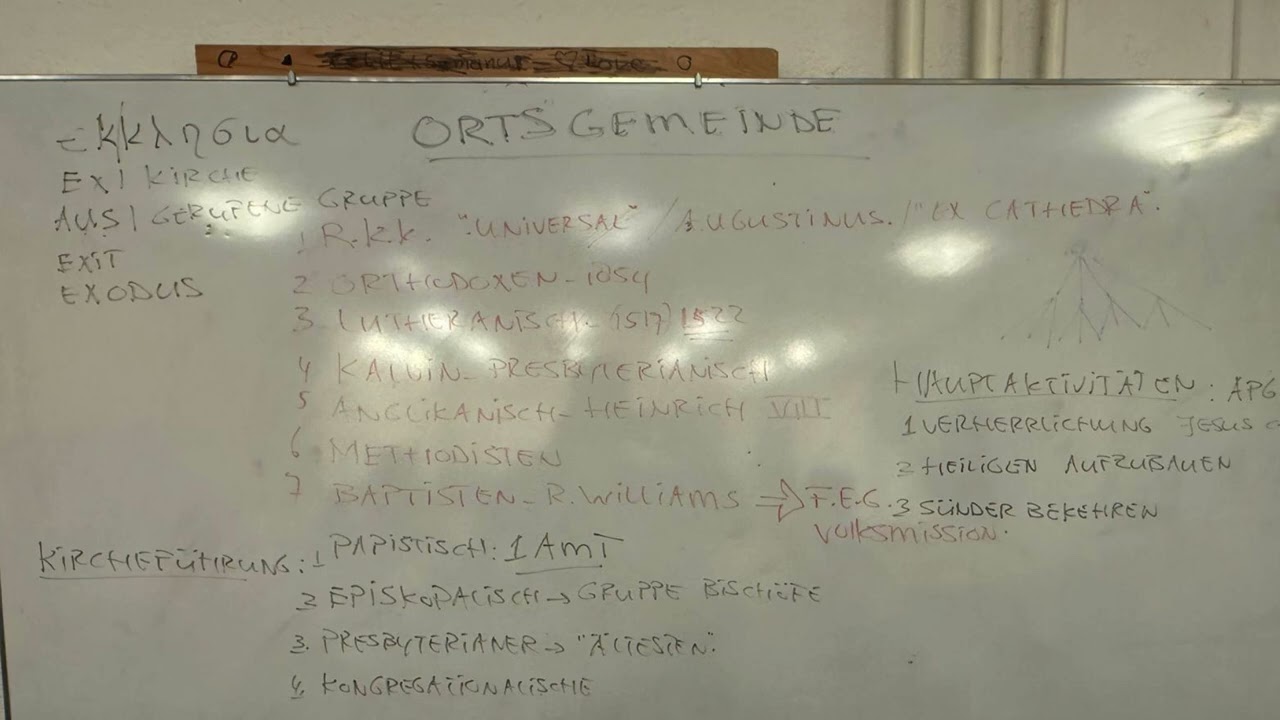 ORTSGEMEINDE
εκκλησια
EX / KIRCHE
AUS / GERUFENE GRUPPE
EXIT
EXODUS
1 R.K.K. "UNIVERSAL" / AUGUSTINUS. / "EX CATHEDRA".
2 ORTHODOXEN - 1054
3 LUTHERANISCH - (1517) 1522
4 KALVIN - PRESBYTERIANISCH
5 ANGLIKANISCH - HEINRICH VIII
6 METHODISTEN
7 BAPTISTEN - R. WILLIAMS => F.E.G.
VOLKSMISSION.
HAUPTAKTIVITÄTEN: APG
1 VERHERRLICHUNG JESUS
2 HEILIGEN AUFZUBAUEN
3 SÜNDER BEKEHREN
KIRCHEFÜHRUNG: 1 PAPISTISCH: 1 AMT
2 EPISKOPALISCH -> GRUPPE BISCHÖFE
3. PRESBYTERIANER -> "ÄLTESTEN".
4. KONGREGATIONALISCHE